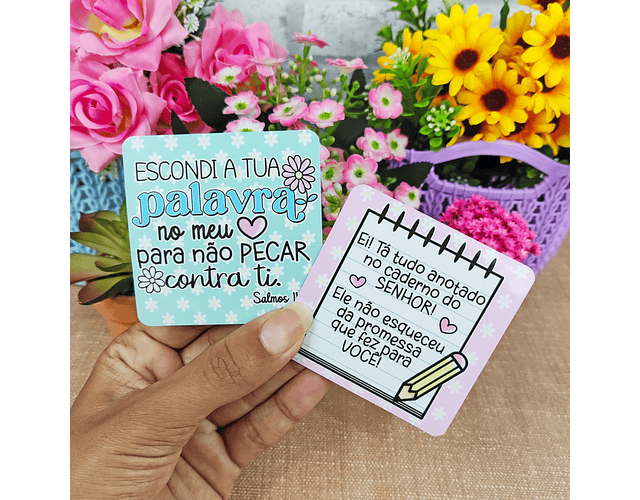 ESCONDI A TUA
palavra
no meu
para não PECAR
contra ti.
Salmos
Ei! Tá tudo anotado
no caderno do
SENHOR!
Ele não esqueceu
da promessa
que fez para
VOCÊ!